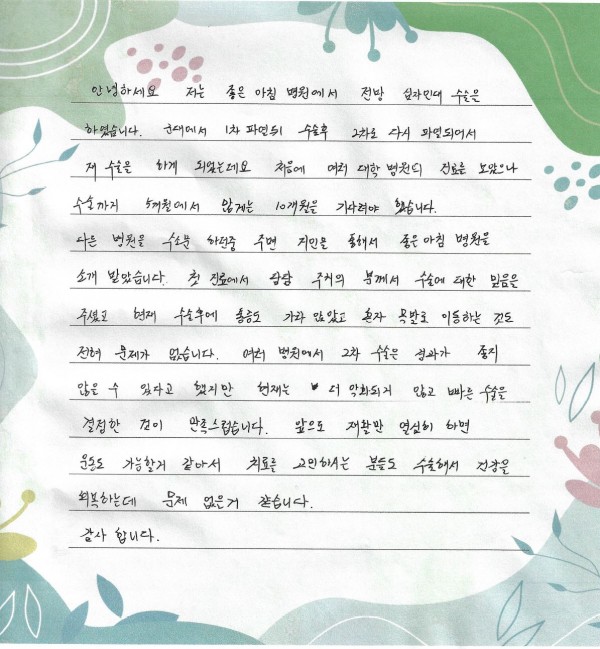 안녕하세요 저는 좋은 아침 병원에서 전방 십자인대 수술을
하였습니다. 군대에서 1차 파열뒤 수술후 2차로 다시 파열되어서
재 수술을 하게 되었는데요 처음에 여러 대학 병원의 진료를 보았으나
수술까지 5개월에서 많게는 10개월을 기다려야 했습니다.
다른 병원을 수소문 하던중 주변 지인을 통해서 좋은 아침 병원을
소개 받았습니다. 첫 진료에서 담당 주치의 분께서 수술에 대한 믿음을
주셨고 현재 수술후에 통증도 가라 앉았고 혼자 목발로 이동하는 것도
전혀 문제가 없습니다. 여러 병원에서 2차 수술은 결과가 좋지
않을 수 있다고 했지만 현재는 더 악화되지 않고 빠른 수술을
결정한 것이 만족스럽습니다. 앞으로 재활만 열심히 하면
운동도 가능할거 같아서 치료를 고민하시는 분들도 수술해서 건강을
회복하는데 문제 없을거 같습니다.
감사 합니다.